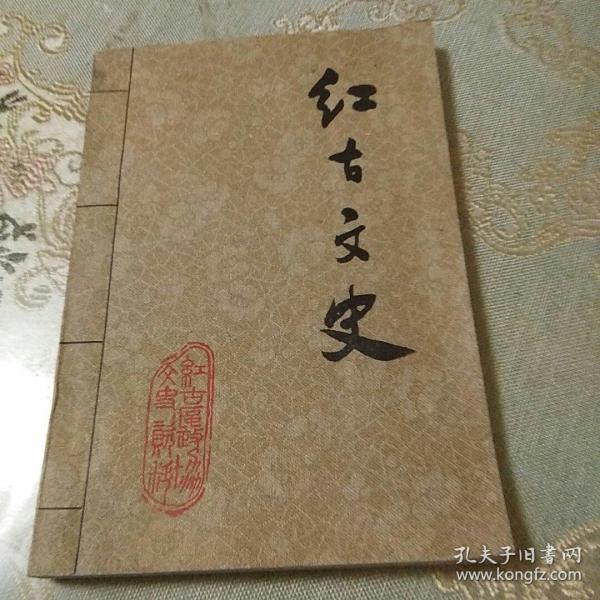 红古文史
紅古區政協
文史資料
孔夫子旧书网
www.kongfz.com